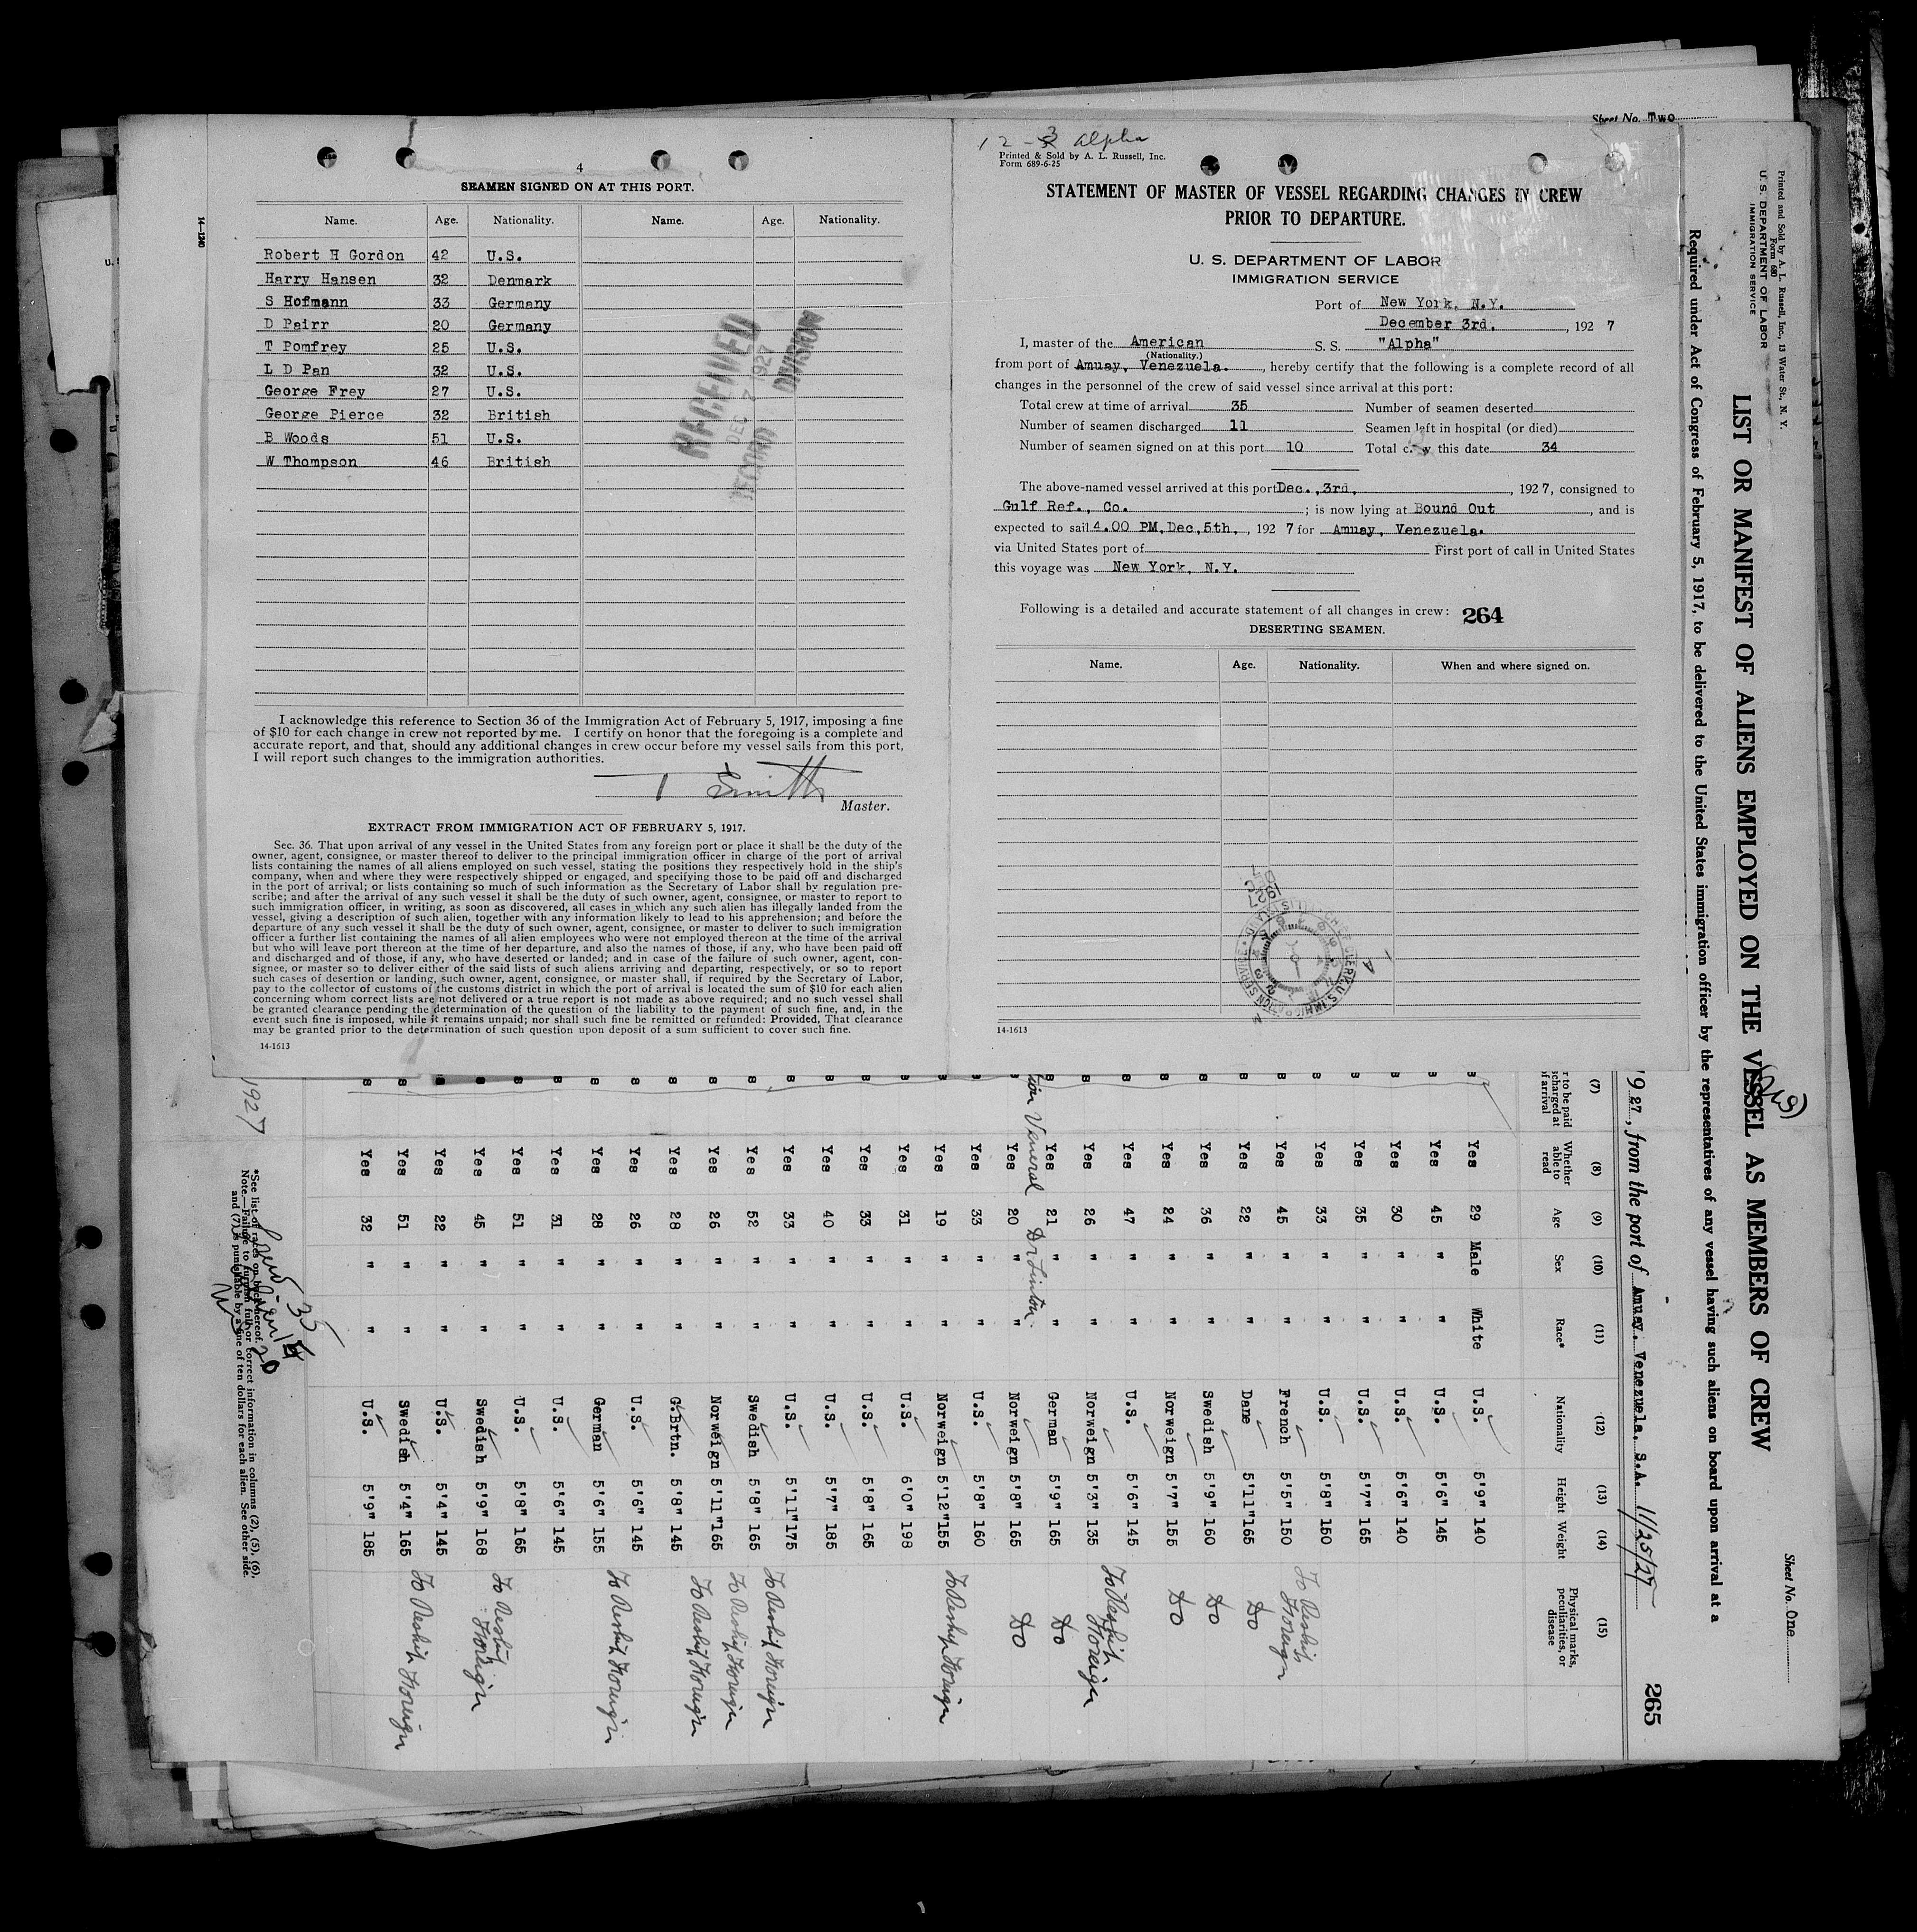 4
SEAMEN SIGNED ON AT THIS PORT.
Name. Age. Nationality. Name. Age. Nationality.
Robert H Gordon 42 U.S.
Harry Hansen 32 Denmark
S Hofmann 33 Germany
D Pairr 20 Germany
T Pomfrey 25 U.S.
L D Pan 32 U.S.
George Frey 27 U.S.
George Pierce 32 British
B Woods 51 U.S.
W Thompson 46 British
RECEIVED
DEC 7 1927
RECORD DIVISION
I acknowledge this reference to Section 36 of the Immigration Act of February 5, 1917, imposing a fine
of $10 for each change in crew not reported by me. I certify on honor that the foregoing is a complete and
accurate report, and that, should any additional changes in crew occur before my vessel sails from this port,
I will report such changes to the immigration authorities.
T Smith
Master.
EXTRACT FROM IMMIGRATION ACT OF FEBRUARY 5, 1917.
Sec. 36. That upon arrival of any vessel in the United States from any foreign port or place it shall be the duty of the
owner, agent, consignee, or master thereof to deliver to the principal immigration officer in charge of the port of arrival
lists containing the names of all aliens employed on such vessel, stating the positions they respectively hold in the ship's
company, when and where they were respectively shipped or engaged, and specifying those to be paid off and discharged
in the port of arrival; or lists containing so much of such information as the Secretary of Labor shall by regulation pre-
scribe; and after the arrival of any such vessel it shall be the duty of such owner, agent, consignee, or master to report to
such immigration officer, in writing, as soon as discovered, all cases in which any such alien has illegally landed from the
vessel, giving a description of such alien, together with any information likely to lead to his apprehension; and before the
departure of any such vessel it shall be the duty of such owner, agent, consignee, or master to deliver to such immigration
officer a further list containing the names of all alien employees who were not employed thereon at the time of the arrival
but who will leave port thereon at the time of her departure, and also the names of those, if any, who have been paid off
and discharged and of those, if any, who have deserted or landed; and in case of the failure of such owner, agent, con-
signee, or master so to deliver either of the said lists of such aliens arriving and departing, respectively, or so to report
such cases of desertion or landing, such owner, agent, consignee, or master shall, if required by the Secretary of Labor,
pay to the collector of customs of the customs district in which the port of arrival is located the sum of $10 for each alien
concerning whom correct lists are not delivered or a true report is not made as above required; and no such vessel shall
be granted clearance pending the determination of the question of the liability to the payment of such fine, and, in the
event such fine is imposed, while it remains unpaid; nor shall such fine be remitted or refunded: Provided, That clearance
may be granted prior to the determination of such question upon deposit of a sum sufficient to cover such fine.
14-1613
14-1240
12-3 Alpha
Printed & Sold by A. L. Russell, Inc.
Form 689-6-25
STATEMENT OF MASTER OF VESSEL REGARDING CHANGES IN CREW
PRIOR TO DEPARTURE.
U. S. DEPARTMENT OF LABOR
IMMIGRATION SERVICE
Port of New York, N.Y.
December 3rd. , 192 7
I, master of the American S. S. "Alpha"
(Nationality.)
from port of Amuay, Venezuela. , hereby certify that the following is a complete record of all
changes in the personnel of the crew of said vessel since arrival at this port:
Total crew at time of arrival 35 Number of seamen deserted
Number of seamen discharged 11 Seamen left in hospital (or died)
Number of seamen signed on at this port 10 Total crew this date 34
The above-named vessel arrived at this port Dec.,3rd, , 192 7, consigned to
Gulf Ref., Co. ; is now lying at Bound Out , and is
expected to sail 4.00 PM,Dec,5th, , 192 7 for Amuay, Venezuela.
via United States port of First port of call in United States
this voyage was New York, N.Y.
Following is a detailed and accurate statement of all changes in crew: 264
DESERTING SEAMEN.
Name. Age. Nationality. When and where signed on.
14-1613
Sheet No. Two
Printed and Sold by A. L. Russell, Inc., 13 Water St., N. Y.
Form 680
U. S. DEPARTMENT OF LABOR
IMMIGRATION SERVICE
Sheet No. One
LIST OR MANIFEST OF ALIENS EMPLOYED ON THE VESSEL AS MEMBERS OF CREW
Required under Act of Congress of February 5, 1917, to be delivered to the United States immigration officer by the representatives of any vessel having such aliens on board upon arrival at a
1927, from the port of Amuay. Venezuela. S.A. 11/25/27
265
(7) (8) (9) (10) (11) (12) (13) (14) (15)
Whether able to read Age Sex Race* Nationality Height Weight Physical marks, peculiarities, or disease
Yes 29 Male White U.S. 5'9" 140
Yes 45 " " U.S. 5'6" 145
Yes 30 " " U.S. 5'6" 140
Yes 35 " " U.S. 5'7" 165
Yes 33 " " U.S. 5'8" 150
Yes 45 " " French 5'5" 150 To Reship Foreign
Yes 22 " " Dane 5'11" 165 Do
Yes 36 " " Swedish 5'9" 160 Do
Yes 24 " " Norweign 5'7" 155 Do
Yes 47 " " U.S. 5'6" 145
Yes 26 " " Norweign 5'3" 135 To Reship Foreign
Yes 21 " " German 5'9" 165 Do
Yes 20 " " Norweign 5'8" 165 Do
Yes 33 " " U.S. 5'8" 160
Yes 19 " " Norweign 5'12" 155 To Reship Foreign
Yes 31 " " U.S. 6'0" 198
Yes 33 " " U.S. 5'8" 165
Yes 40 " " U.S. 5'7" 185
Yes 33 " " U.S. 5'11" 175
Yes 52 " " Swedish 5'8" 165 To Reship Foreign
Yes 26 " " Norweign 5'11" 165 To Reship Foreign
Yes 28 " " G.Brtn. 5'8" 145 To Reship Foreign
Yes 26 " " U.S. 5'6" 145
Yes 28 " " German 5'6" 155 To Reship Foreign
Yes 31 " " U.S. 5'6" 145
Yes 51 " " U.S. 5'8" 165
Yes 45 " " Swedish 5'9" 168 To Reship Foreign
Yes 22 " " U.S. 5'4" 145
Yes 51 " " Swedish 5'4" 165 To Reship Foreign
Yes 32 " " U.S. 5'9" 185
1927
*See list of races on back hereof.
Note.—Failure to furnish full or correct information in columns (2), (5), (6),
and (7) is punishable by a fine of ten dollars for each alien. See other side.